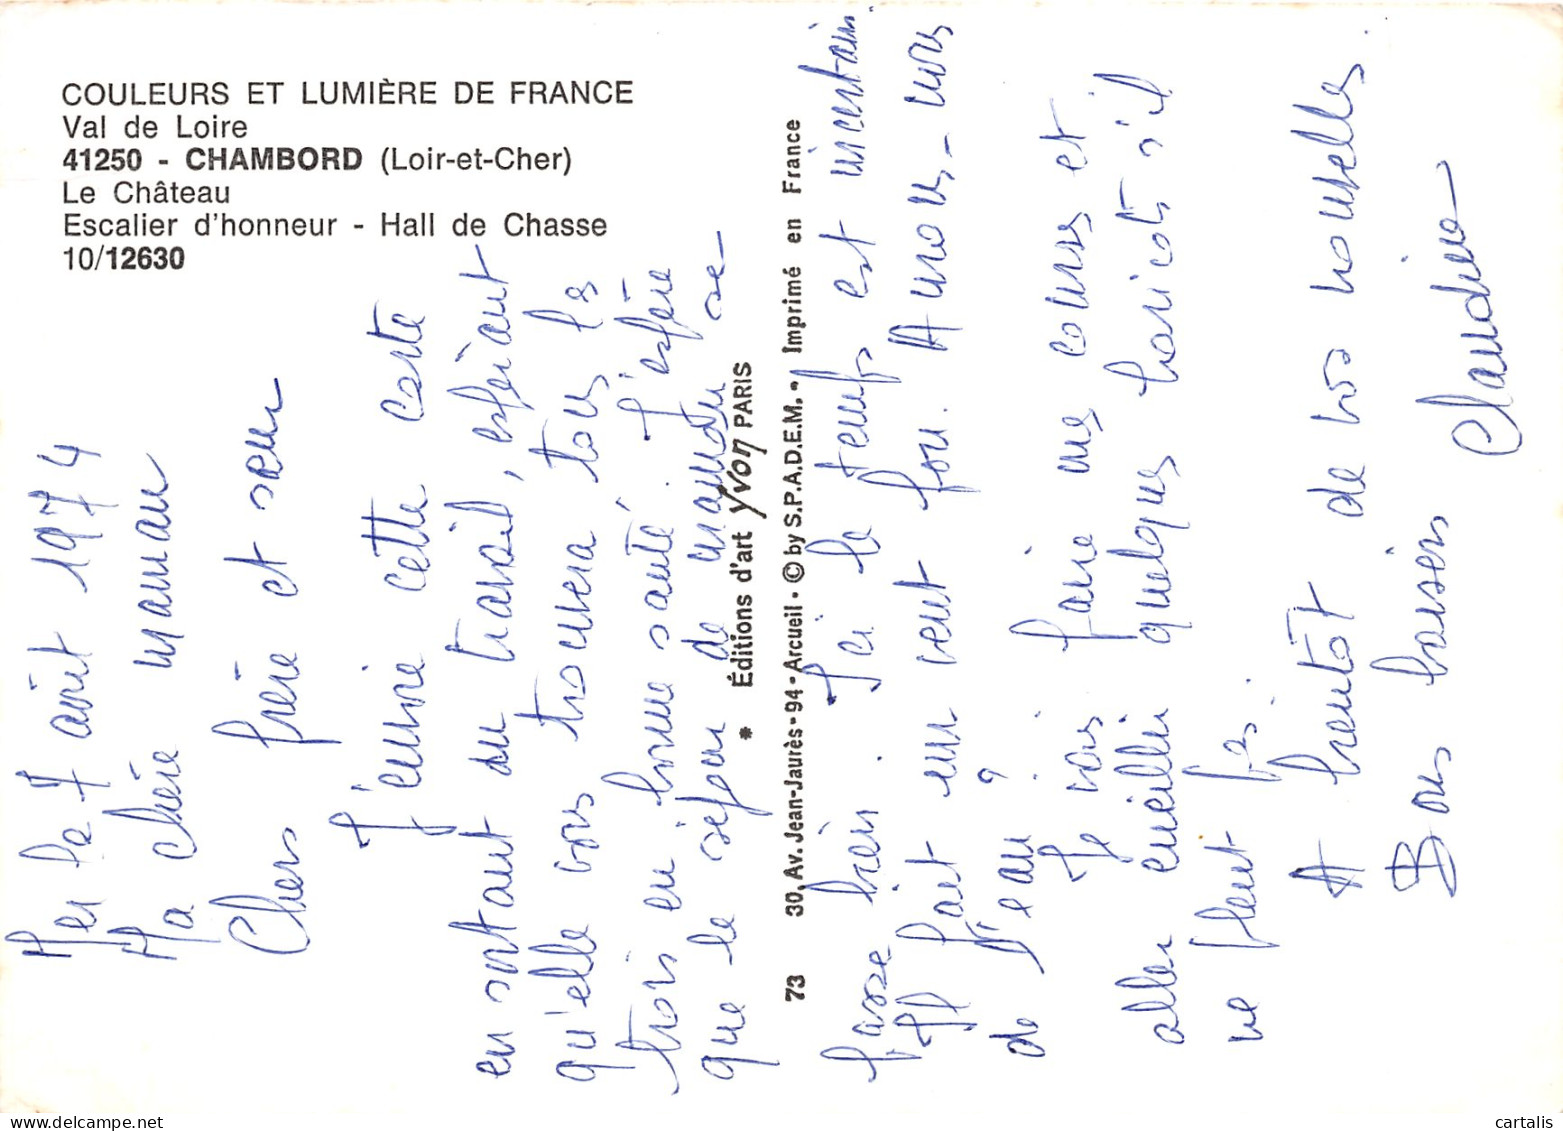 COULEURS ET LUMIÈRE DE FRANCE
Val de Loire
41250 - CHAMBORD (Loir-et-Cher)
Le Château
Escalier d'honneur - Hall de Chasse
10/12630
Mer le 7 août 1974
Ma chère maman
Chers frère et sœur
J'envoie cette carte
en sortant du travail, espérant
qu'elle vous trouvera tous les
trois en bonne santé. J'espère
que le séjour de maman se
* Éditions d'art Yvon PARIS
73 30, Av. Jean-Jaurès-94-Arcueil - © by S.P.A.D.E.M. - Imprimé en France
passe bien. Ici le temps est incertain
Il fait un vent fou. Avons-nous
de l'eau ?
Je vais faire mes courses et
aller cueillir quelques haricots s'il
ne pleut pas.
A bientôt de vos nouvelles.
Bons baisers Claudine
cartalis